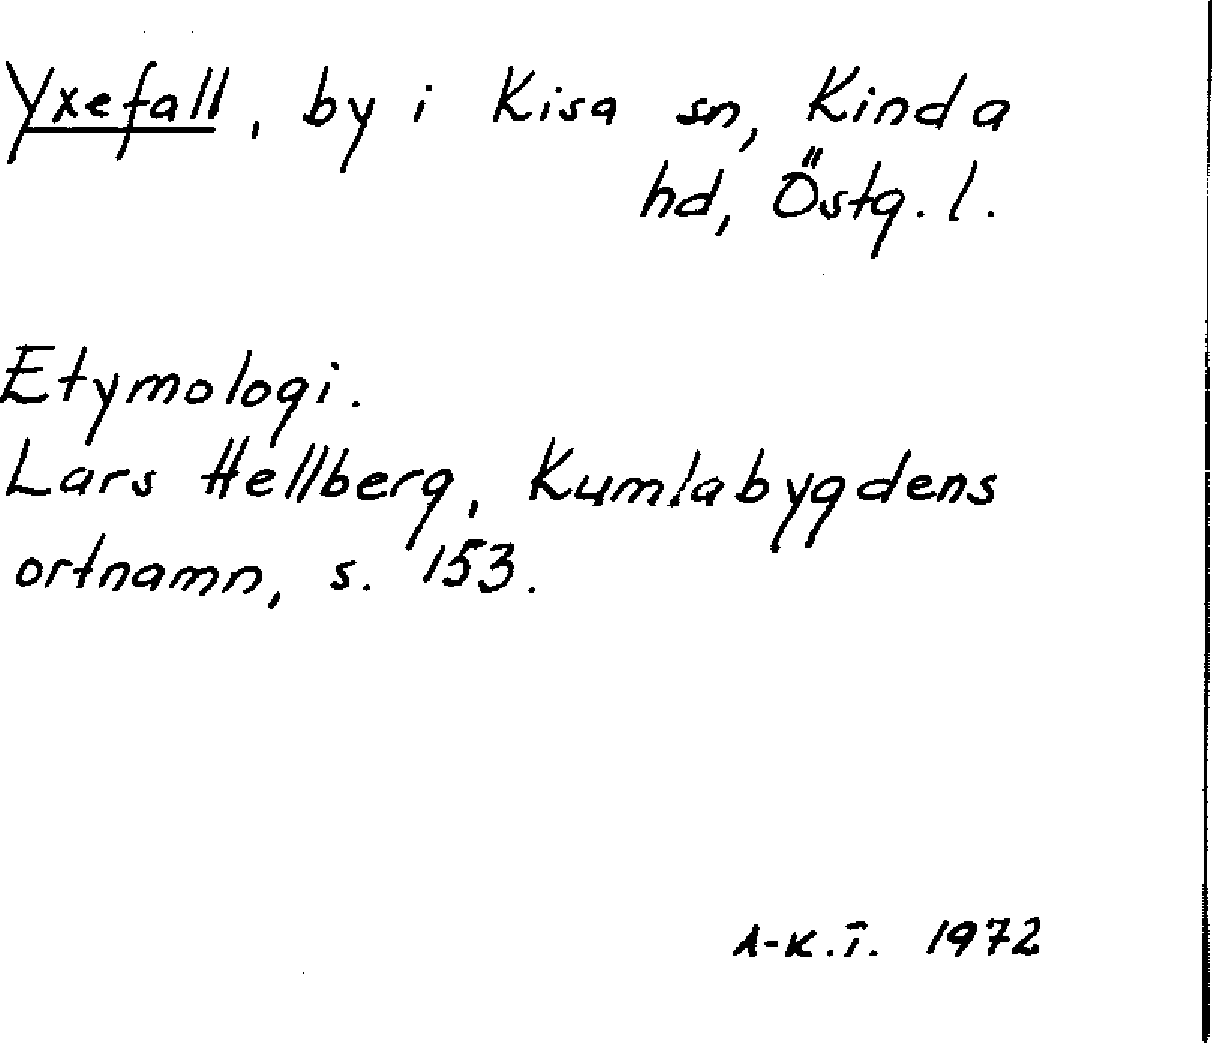 Yxefall, by i Kisa sn, Kinda
hd, Östg. l.
Etymologi.
Lars Hellberg, Kumlabygdens
ortnamn, s. 153.
A-K.T. 1972